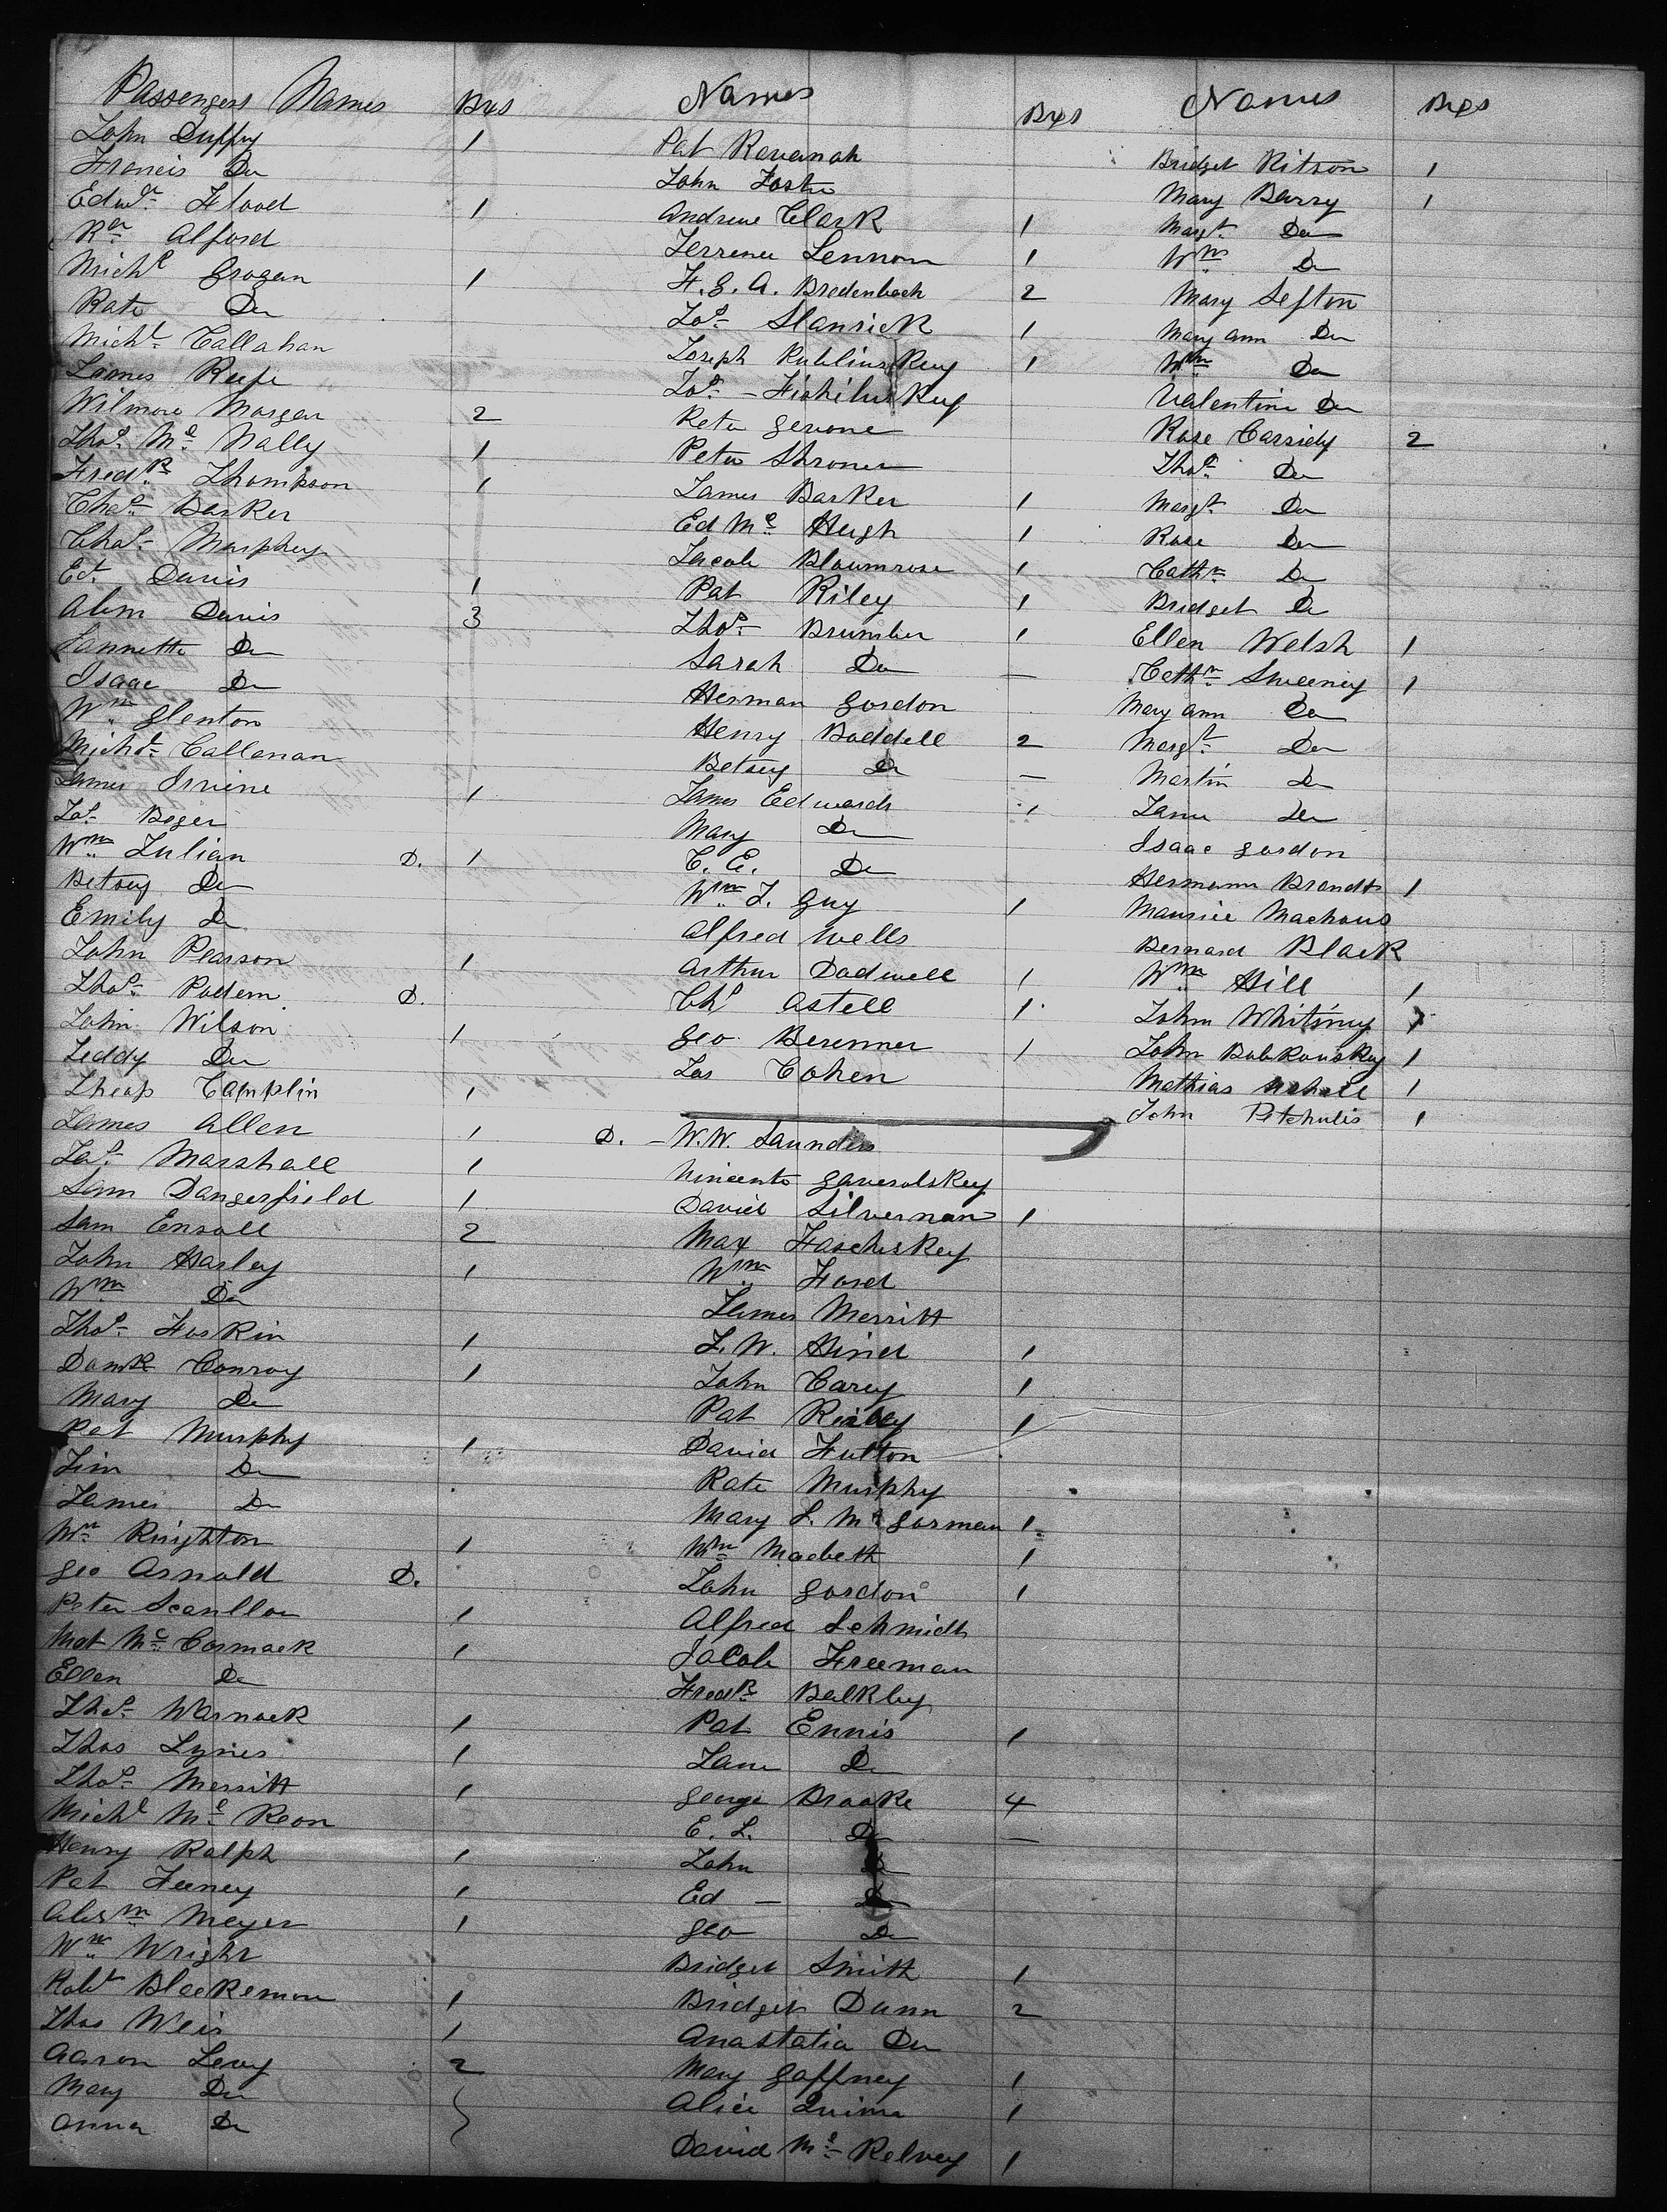 Passengers Names Bxs
John Duffy 1
Francis Do
Edwd. Flood 1
Rd Alford
Michl Grogan 1
Kate Do
Michl. Callahan
James Keefe
Wilmore Morgan 2
Thos. Mc Nally 1
Fredk. Thompson 1
Chas. Barker
Chas. Murphy
Ed. Davis 1
Abm Davis 3
Jannette Do
Isaac Do
Wm. Glenton
Michl. Callanan
James Irvine 1
Jas. Beger
Wm. Julian D. 1
Betsey Do
Emily Do
John Pearson 1
Thos. Podem D.
John Wilson 1
Teddy Do
Theop Camplin 1
James Allen 1
Jas. Marshall 1
Sam Dangerfield 1
Sam Ensoll 2
John Harley 1
Wm. Do
Thos. Foskin 1
Domk Conroy 1
Mary Do
Pat Murphy 1
Tim Do
James Do
Wm. Knighton 1
Geo Arnold D.
Peter Scanllon 1
Mat Mc Cormack 1
Ellen Do
Thos. Warnock 1
Thos Lynes 1
Thos. Merritt 1
Michl Mc Keon
Henry Ralph 1
Pat Feeney 1
Meyer 1
Wm. Wright
Robt Bleckemore 1
Thos Weir 1
Aaron Levy 2
Mary Do
Anna Do
Names Bxs
Pat Kavanah
John Foster
Andrew Clark 1
Terrence Lennon 1
F. G. A. Bredenbach 2
Jos. Slansick 1
Joseph Rublinskey 1
Jos.
Peter Gerone
Peter Shroner
James Barker 1
Ed Mc Hugh 1
Jacob Bloumrose 1
Pat Riley 1
Thos. Brumber 1
Sarah Do —
Herman Gordon
Henry Boddell 2
Betsey Do —
James Edwards 1
Mary Do
C. E. Do
Wm. J. Guy 1
Alfred Wells
Arthur Dodwell 1
Chs Astell 1
Geo Berenner 1
Jas Cohen
D. — W. W. Saunders
Vincento Gaverolskey
David Silverman 1
Max Fascheskey
Wm. Ford
James Merritt
J. W. Hind 1
John Carey 1
Pat Reilley 1
David Hutton
Kate Murphy
Mary J. Mc Gorman 1
Wm Macbeth 1
John Gordon 1
Alfred Schmidt
Jacob Freeman
Fredk Balkley
Pat Ennis 1
Jane Do
George Brooke 4
E. L. Do —
John Do
Ed — Do
Geo Do
Bridget Smith 1
Bridget Dunn 2
Anastatia Do
Mary Gaffney 1
Alice Quinn 1
David Mc Kelvey 1
Names Bxs
Bridget Kitson 1
Mary Barry 1
Margt. Do
Wm. Do
Mary Sefton
Mary Ann Do
Wm Do
Valentine Do
Rose Cassidy 2
Thos. Do
Margt. Do
Rose Do
Cathn. Do
Bridget Do
Ellen Welsh 1
Cathn. Sweeney 1
Mary Ann Do
Margt. Do
Martin Do
Jane Do
Isaac Gordon
Hermann Brandt 1
Maurice Machous
Bernard Black
Wm. Hill 1
John Whitney 1
John Bobkouskey 1
Mathias 1
John Petchulis 1